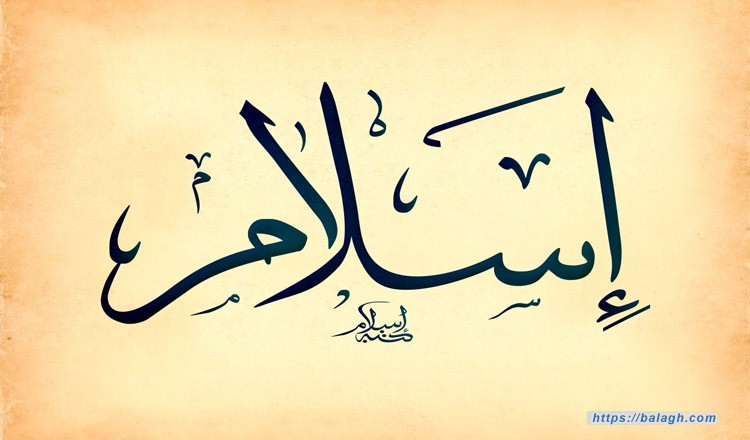 إسلام
كتبه إسلام
https://balagh.com